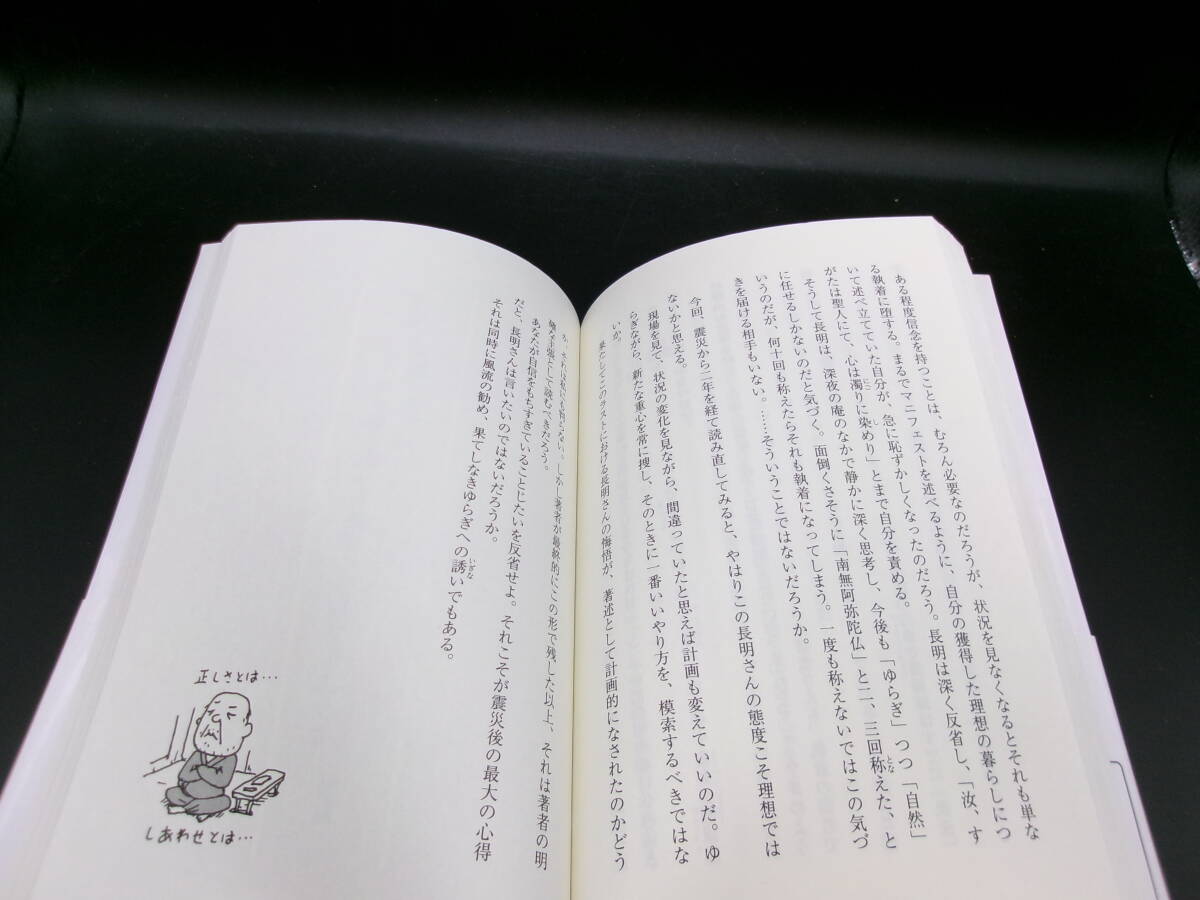 ある程度信念を持つことは、むろん必要なのだろうが、状況を見なくなるとそれも単な
る執着に堕する。まるでマニフェストを述べるように、自分の獲得した理想の暮らしにつ
いて述べ立てていた自分が、急に恥ずかしくなったのだろう。長明は深く反省し、「汝、す
がたは聖人にて、心は濁りに染めり」とまで自分を責める。
そうして長明は、深夜の庵のなかで静かに深く思考し、今後も「ゆらぎ」つつ「自然」
に任せるしかないのだと気づく。面倒くさそうに「南無阿弥陀仏」と二、三回称えた、と
いうのだが、何十回も称えたらそれも執着になってしまう。一度も称えないではこの気づ
きを届ける相手もいない。……そういうことではないだろうか。
今回、震災から二年を経て読み直してみると、やはりこの長明さんの態度こそ理想では
ないかと思える。
現場を見て、状況の変化を見ながら、間違っていたと思えば計画も変えていいのだ。ゆ
らぎながら、新たな重心を常に捜し、そのときに一番いいやり方を、模索するべきではな
いか。
果たしてこのラストにおける長明さんの悔悟が、著述として計画的になされたのかどう
か、それは私にも判らない。しかし著者が最終的にこの形で残した以上、それは著者の明
確な主張として読むべきだろう。
あなたが自信をもちすぎていることじたいを反省せよ。それこそが震災後の最大の心得
だと、長明さんは言いたいのではないだろうか。
それは同時に風流の勧め、果てしなきゆらぎへの誘いでもある。
正しさとは…
しあわせとは…